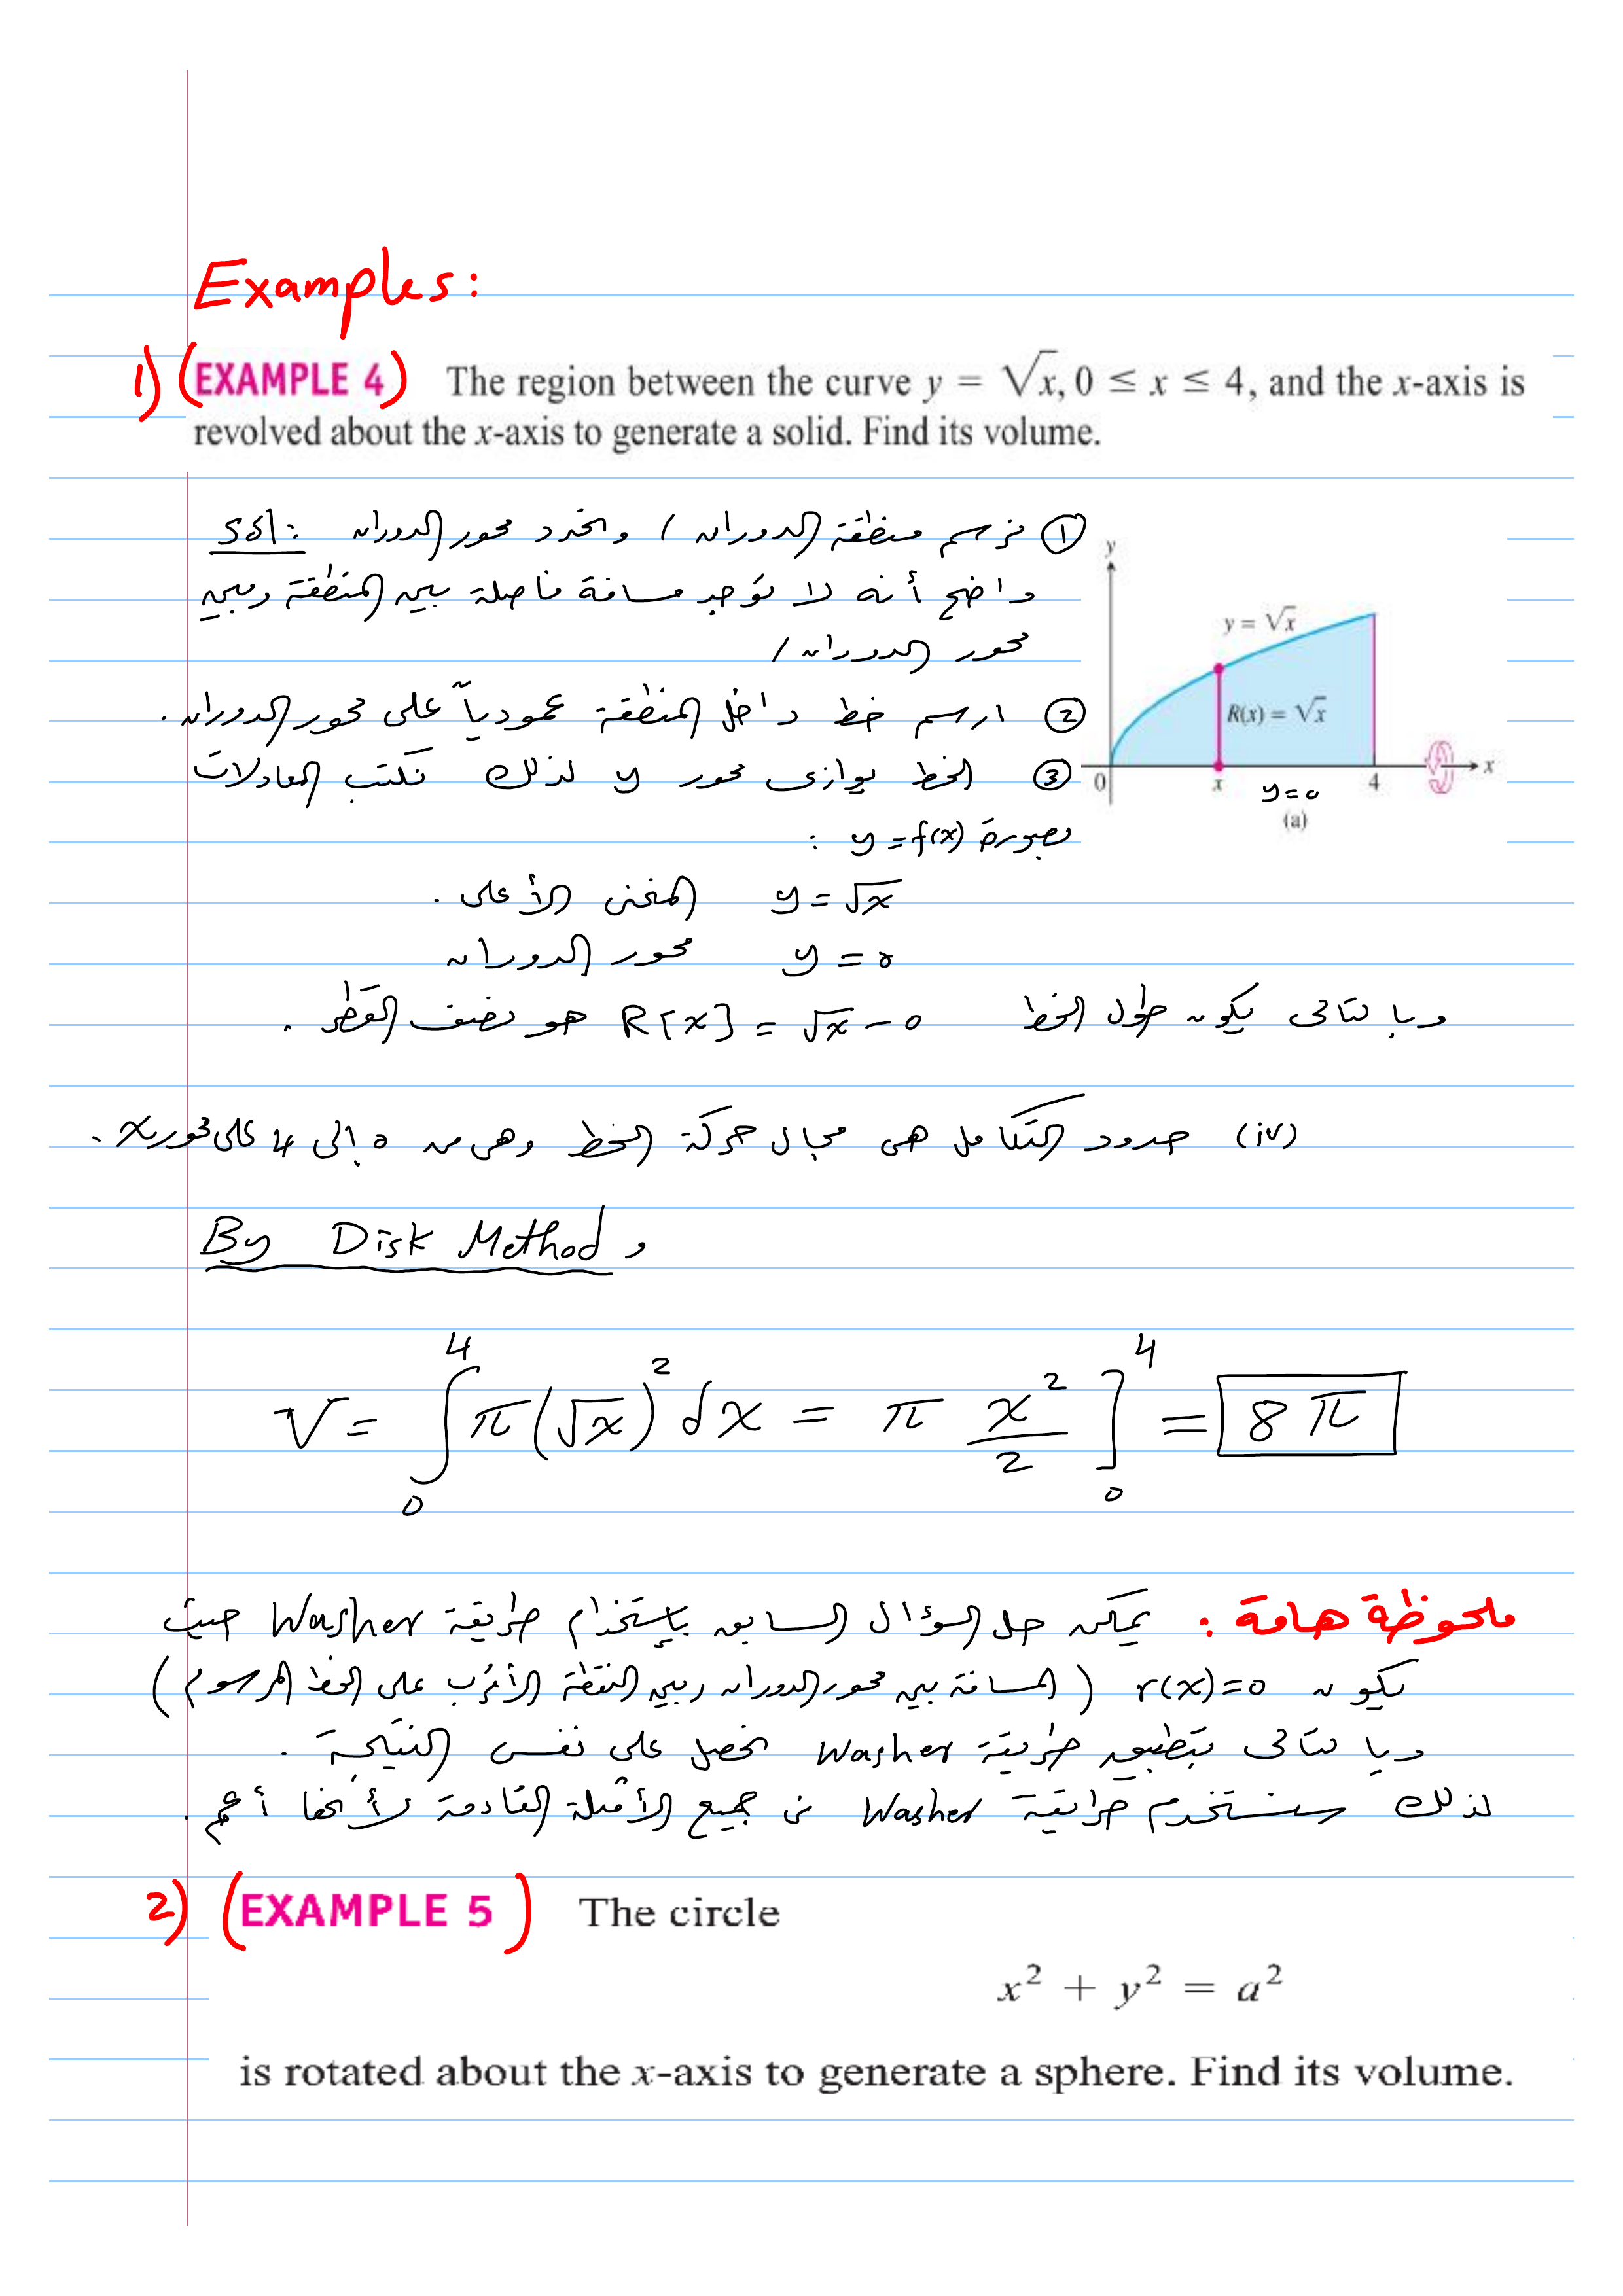 Examples:
1) (EXAMPLE 4) The region between the curve y = √x, 0 ≤ x ≤ 4, and the x-axis is
revolved about the x-axis to generate a solid. Find its volume.
Sol: ① نرسم منطقة الدوران، ونحدد محور الدوران
واضح أنه لا توجد مسافة فاصلة بين المنطقة وبين
محور الدوران،
② ارسم خط داخل المنطقة عمودياً على محور الدوران.
③ الخط يوازى محور y لذلك نكتب المعادلات
بصورة y = f(x) :
y
y = √x
R(x) = √x
0 x 4 x
y = 0
(a)
y = √x المنحنى الأعلى.
y = 0 محور الدوران
وبالتالى يكون طول الخط R[x] = √x − 0 هو نصف القطر.
(iv) حدود التكامل هى مجال حركة الخط وهى من 0 إلى 4 على محور x.
By Disk Method,
V = ∫₀⁴ π(√x)² dx = π x²/2 ]₀⁴ = 8π
ملحوظة هامة: يمكن حل السؤال السابق بإستخدام طريقة Washer حيث
تكون r(x)=0 (المسافة بين محور الدوران وبين النقطة الأقرب على الخط المرسوم)
وبالتالى بتطبيق طريقة Washer نحصل على نفس النتيجة.
لذلك سنستخدم طريقة Washer فى جميع الأمثلة القادمة لأنها أعم.
2) (EXAMPLE 5) The circle
x² + y² = a²
is rotated about the x-axis to generate a sphere. Find its volume.